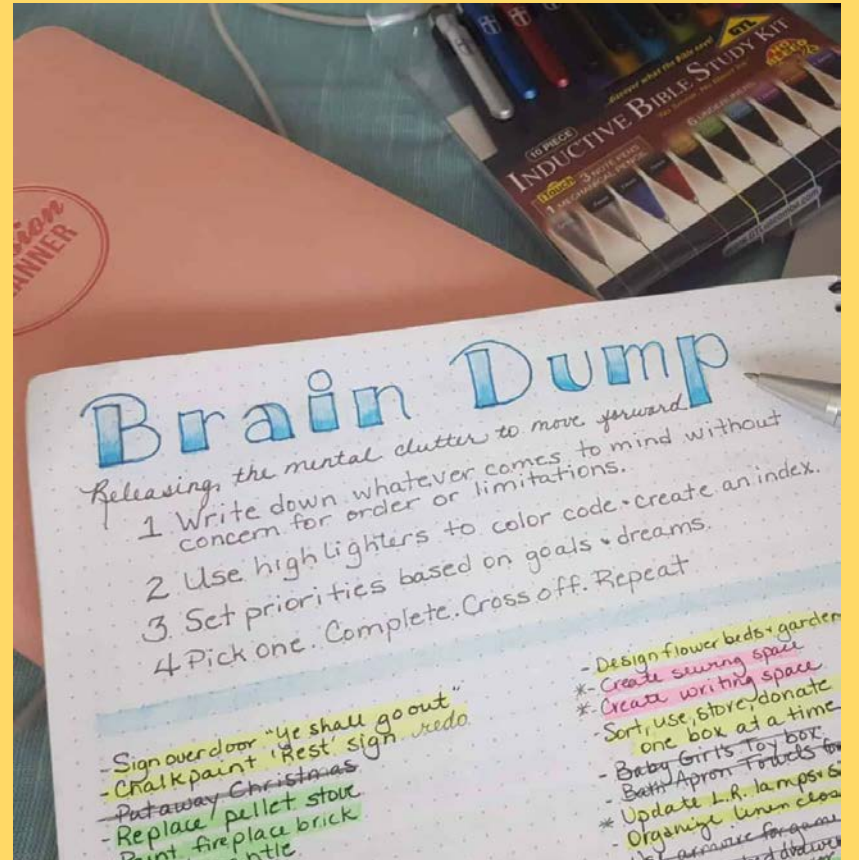 PLANNER
...discover what the Bible says!
GTL
10 PIECE
INDUCTIVE BIBLE STUDY KIT
No Smear, No Bleed Thru
iTouch 3 NOTE PENS
6 UNDERLINERS
1 MECHANICAL PENCIL
Brain Dump
Releasing the mental clutter to move forward
1 Write down whatever comes to mind without
concern for order or limitations.
2 Use highlighters to color code • create an index.
3. Set priorities based on goals • dreams.
4 Pick one. Complete. Cross off. Repeat
- Sign over door "ye shall go out"
- Chalkpaint 'Rest' sign redo
- Put away Christmas
- Replace pellet stove
fireplace brick
- Design flower beds + garden
*- Create sewing space
*- Create writing space
- Sort, use, store, donate
one box at a time
- Baby Girl's Toy box
- Bath Apron Towels
* Update L.R. lamps +
- Organize linen
armoire for game